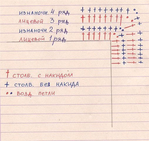 изнаночн 4 ряд
лицевой 3 ряд
изнаночн 2 ряд
лицевой 1 ряд
столб. с накидом
столб без накида
возд петли